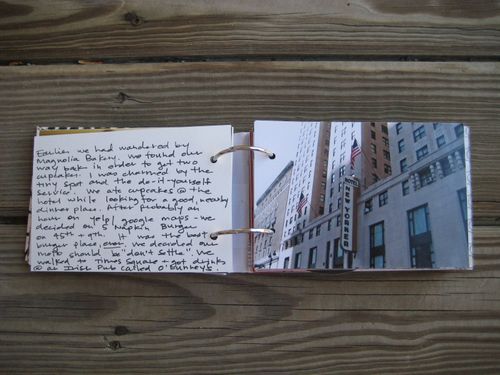 Earlier we had wandered by
Magnolia Bakery. We found our
way back in order to get two
cupcakes. I was charmed by the
tiny spot and the do-it-yourself
service. We ate cupcakes @ the
hotel while looking for a good, nearby
dinner place. After probably an
hour on yelp/google maps - we
decided on 5 Napkin Burger
on 45th + 9th. It was the best
burger place, ever. We decided our
motto should be "don't settle". We
walked to Times Square + got drinks
@ an Irish Pub called O'Lunney's.
NEW YORKER